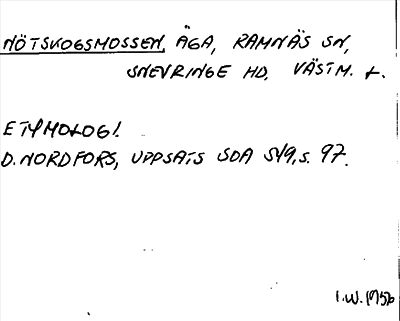 NÖTSKOGSMOSSEN, ÄGA, RAMNÄS SN,
SNEVRINGE HD, VÄSTM. L.
ETYMOLOGI.
D. NORDFORS, UPPSATS SOA S. 97.
I.W.